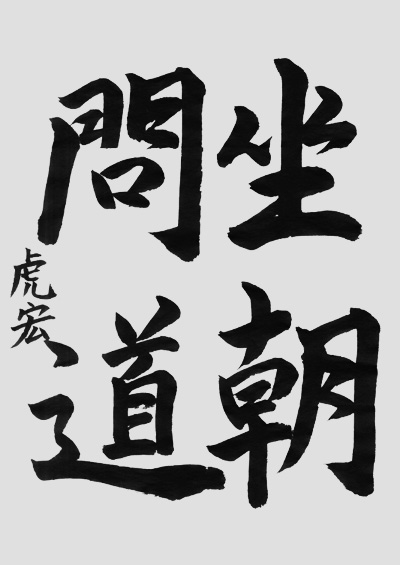 坐朝
問道
虎宏